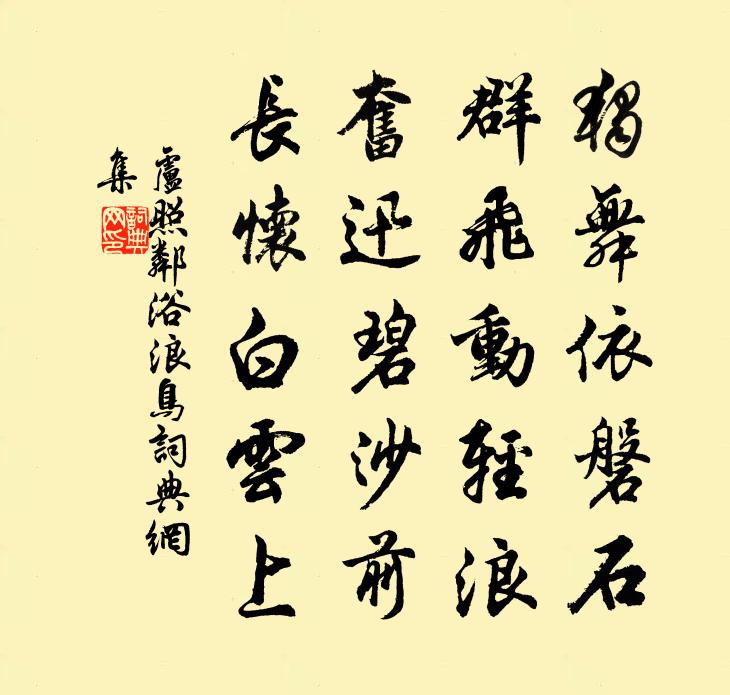 獨舞依磐石
群飛動輕浪
奮迅碧沙前
長懷白雲上
盧照鄰浴浪鳥詞典網
集
詞典
网印